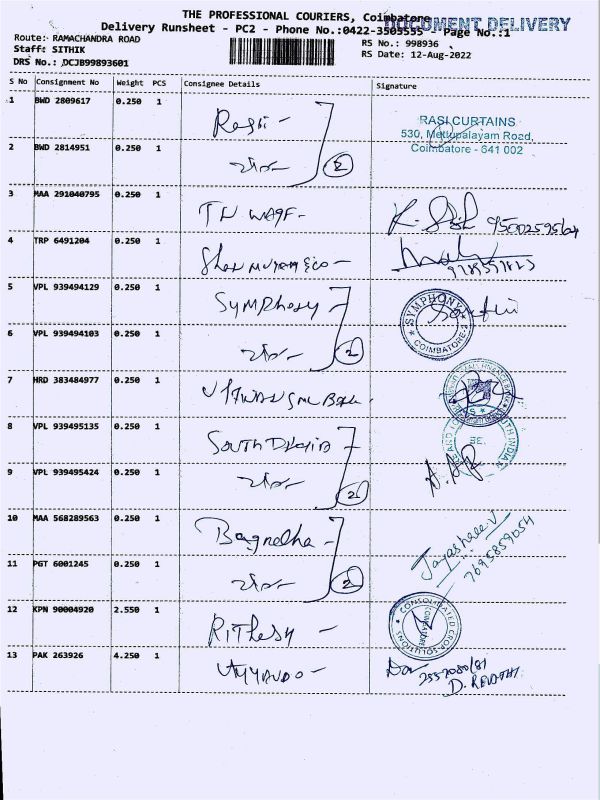 THE PROFESSIONAL COURIERS, Coimbatore
DOCUMENT DELIVERY
Delivery Runsheet - PC2 - Phone No.:0422-3505555 - Page No.:1
Route:- RAMACHANDRA ROAD
RS No.: 998936
Staff: SITHIK
RS Date: 12-Aug-2022
DRS No.: DCJB99893601
S No Consignment No Weight PCS Consignee Details Signature
1 BWD 2809617 0.250 1 Rasi -
RASI CURTAINS
530, Mettupalayam Road,
Coimbatore - 641 002
2 BWD 2814951 0.250 1 2
3 MAA 291040795 0.250 1 TN WAQF -
4 TRP 6491204 0.250 1
5 VPL 939494129 0.250 1 Symphony
SYMPHONY
COIMBATORE-2
6 VPL 939494103 0.250 1 2
7 HRD 383484977 0.250 1
8 VPL 939495135 0.250 1 SOUTH INDIA
9 VPL 939495424 0.250 1 2
10 MAA 568289563 0.250 1
Jayashree.V
7695859054
11 PGT 6001245 0.250 1 2
12 KPN 90004920 2.550 1 RITHESH -
CONSOLIDATED CROP SOLUTIONS
COIMBATORE
13 PAK 263926 4.250 1
D. REVATHI